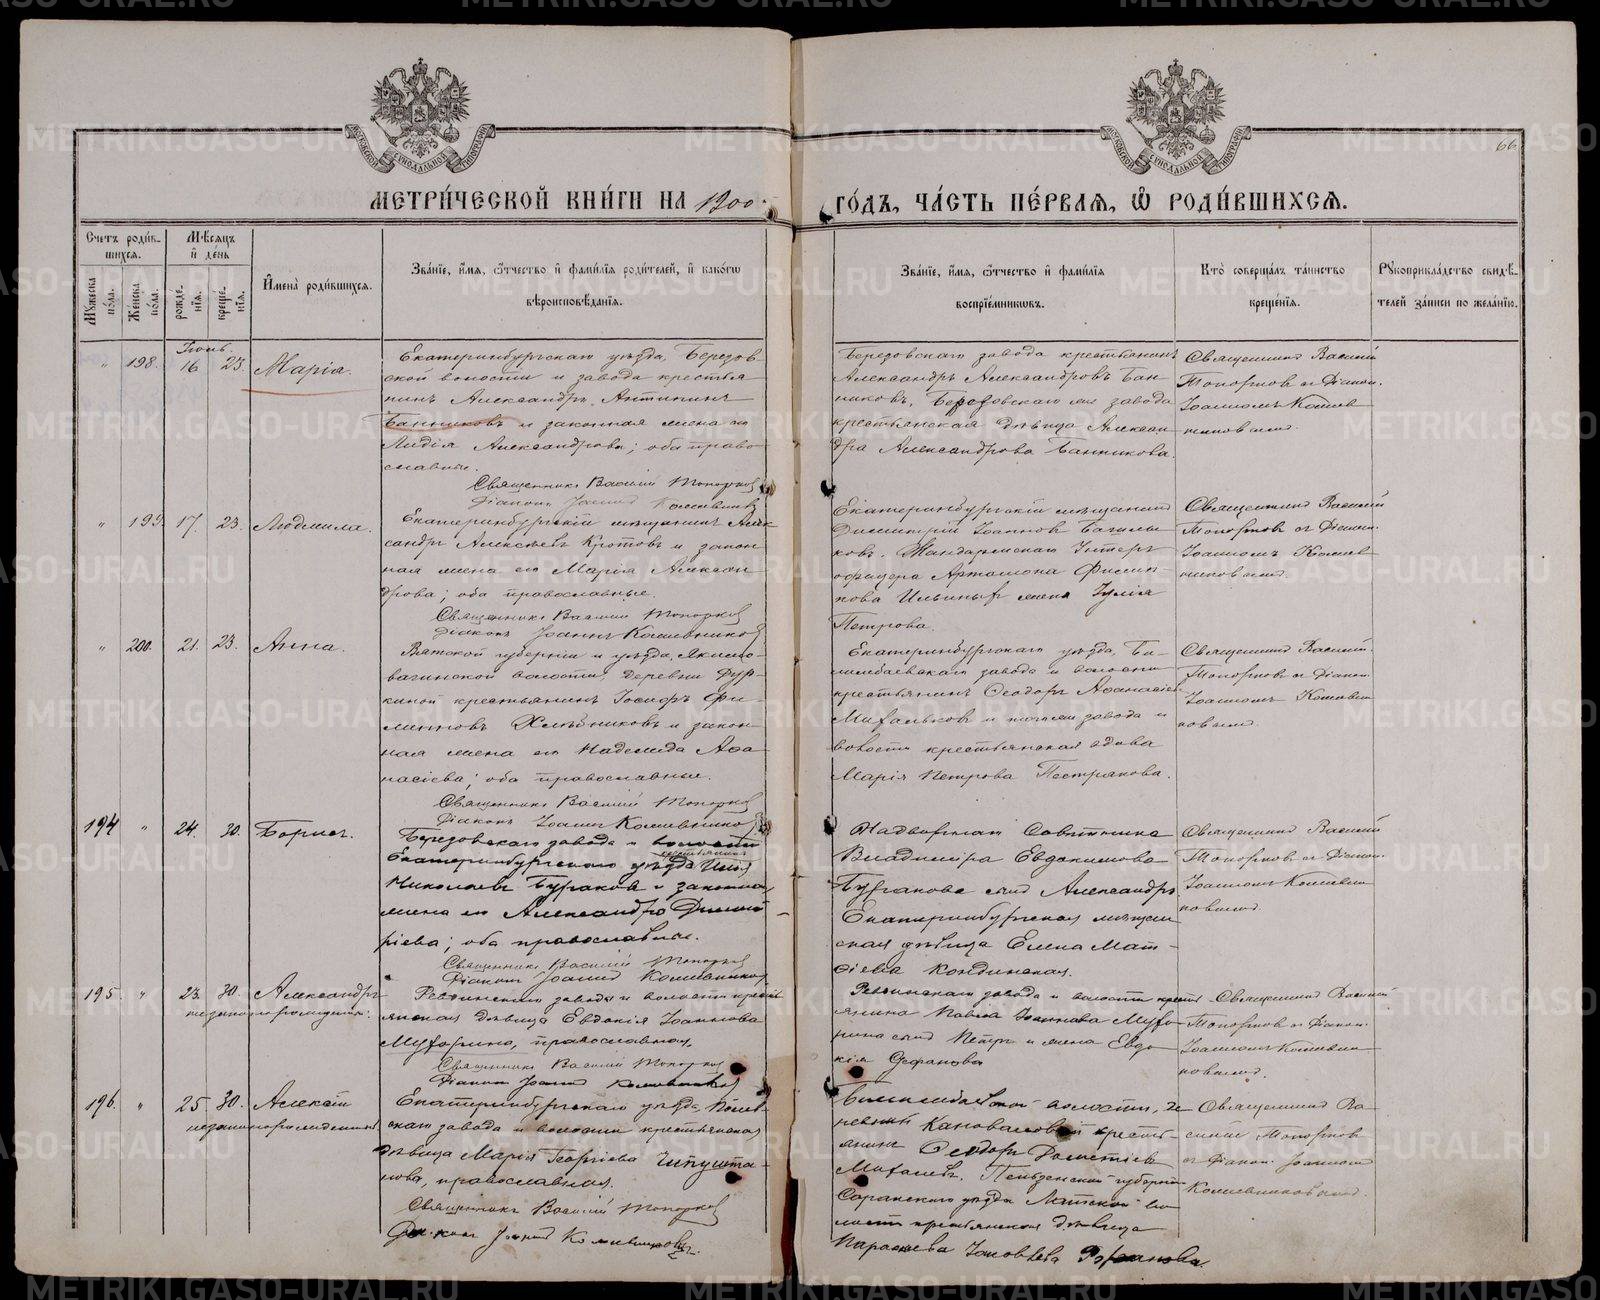 66
МЕТРИ́ЧЕСКОЙ КНИ́ГИ НА 1900
ГО́ДЪ, ЧА́СТЬ ПЕ́РВАЯ, Ѡ҆ РОДИ́ВШИХСЯ.
Счетъ роди́вшихся.
Мꙋжеска по́ла.
Женска по́ла.
Мѣсяцъ и҆ де́нь
рожде́нїя.
креще́нїя.
И҆мена̀ роди́вшихся.
Зва́нїе, и҆́мя, ѻ҆́тчество и҆ фами́лїя роди́телей, и҆ како́гѡ
вѣроисповѣ́данїя.
Зва́нїе, и҆́мя, ѻ҆́тчество и҆ фами́лїя
воспрїе́мниковъ.
Кто̀ соверша́лъ та́инство
креще́нїя.
Рꙋкоприкла́дство свидѣ́-
телей за́писи по жела́нїю.
Іюнь.
" 198. 16 23. Марія.
Екатеринбургскаго уѣзда, Березов-
ской волости и завода крестья
нинъ Александръ Антипинъ
Банниковъ и законная жена его
Лидія Александрова; оба право-
славные.
Священникъ Василій Топорковъ
Діаконъ Іоаннъ Кожевниковъ
Березовскаго завода крестьянинъ
Александръ Александровъ Бан-
никовъ. Березовскаго же завода
крестьянская дѣвица Алексан
дра Александрова Банникова.
Священникъ Василій
Топорковъ съ Діакон.
Іоанномъ Кожев
никовымъ.
" 199. 17. 23. Людмила.
Екатеринбургскій мѣщанинъ Алек
сандръ Алексѣевъ Кротовъ и закон
ная жена его Марія Алексан
дрова; оба православные.
Священникъ Василій Топорковъ
Діаконъ Іоаннъ Кожевниковъ
Екатеринбургскій мѣщанинъ
Димитрій Іоанновъ
ковъ. Жандармскаго Унтеръ
офицера Артамона Филип-
пова Ильиныхъ жена Іулія
Петрова.
Священникъ Василій
Топорковъ съ Діакон.
Іоанномъ Кожев
никовымъ.
" 200. 21. 23. Анна.
Вятской губерніи и уѣзда,
вагинской волости, деревни
киной крестьянинъ Іосифъ Фи-
липповъ Хлѣбниковъ и закон-
ная жена его Надежда Афа
насіева; оба православные.
Священникъ Василій Топорковъ
Діаконъ Іоаннъ Кожевниковъ
Екатеринбургскаго уѣзда, Би-
лимбаевскаго завода и волости
крестьянинъ Ѳеодоръ Аѳанасіевъ
Михальковъ и того же завода и
волости крестьянская вдова
Марія Петрова Пестрякова.
Священникъ Василій
Топорковъ съ Діакон.
Іоанномъ Кожевни
ковымъ.
194 " 24. 30. Борисъ.
Березовскаго завода и волости
Екатеринбургскаго уѣзда крестьянинъ Илія
Николаевъ Бурлаковъ и законная
жена его Александра Димит
ріева; оба православные.
Священникъ Василій Топорковъ
Діаконъ Іоаннъ Кожевниковъ
Надворнаго Совѣтника
Владиміра Евдокимова
сынъ Александръ
Екатеринбургская мѣщан
ская дѣвица Елена Мат-
ѳіева Кондинская.
Священникъ Василій
Топорковъ съ Діакон.
Іоанномъ Кожевни
ковымъ.
195. " 23. 30. Александръ
незаконнорожденн.
Ревдинскаго завода и волости кресть
янская дѣвица Евдокія Іоаннова
православная.
Священникъ Василій Топорковъ
Діаконъ Іоаннъ Кожевниковъ
Ревдинскаго завода и волости кресть
янина Павла Іоаннова
рина сынъ Петръ и жена Евдо
кія Стефанова
Священникъ Василій
Топорковъ съ Діакон.
Іоанномъ Кожевни
ковымъ.
196. " 25 30. Алексѣй
незаконнорожденный
Екатеринбургскаго уѣзда,
скаго завода и волости крестьянская
дѣвица Марія Георгіева Чипушта-
нова, православная.
Священникъ Василій Топорковъ
Діаконъ Іоаннъ Кожевниковъ.
Билимбаевской волости, де
ревни Коноваловой кресть-
янинъ Ѳеодоръ
Пензенской губерніи
Саранскаго уѣзда во-
лости крестьянская дѣвица
Параскева Іаковлева
Священникъ Ва
силій Топорковъ
съ Діакон. Іоанномъ
Кожевниковымъ.
METRIKI.GASO-URAL.RU